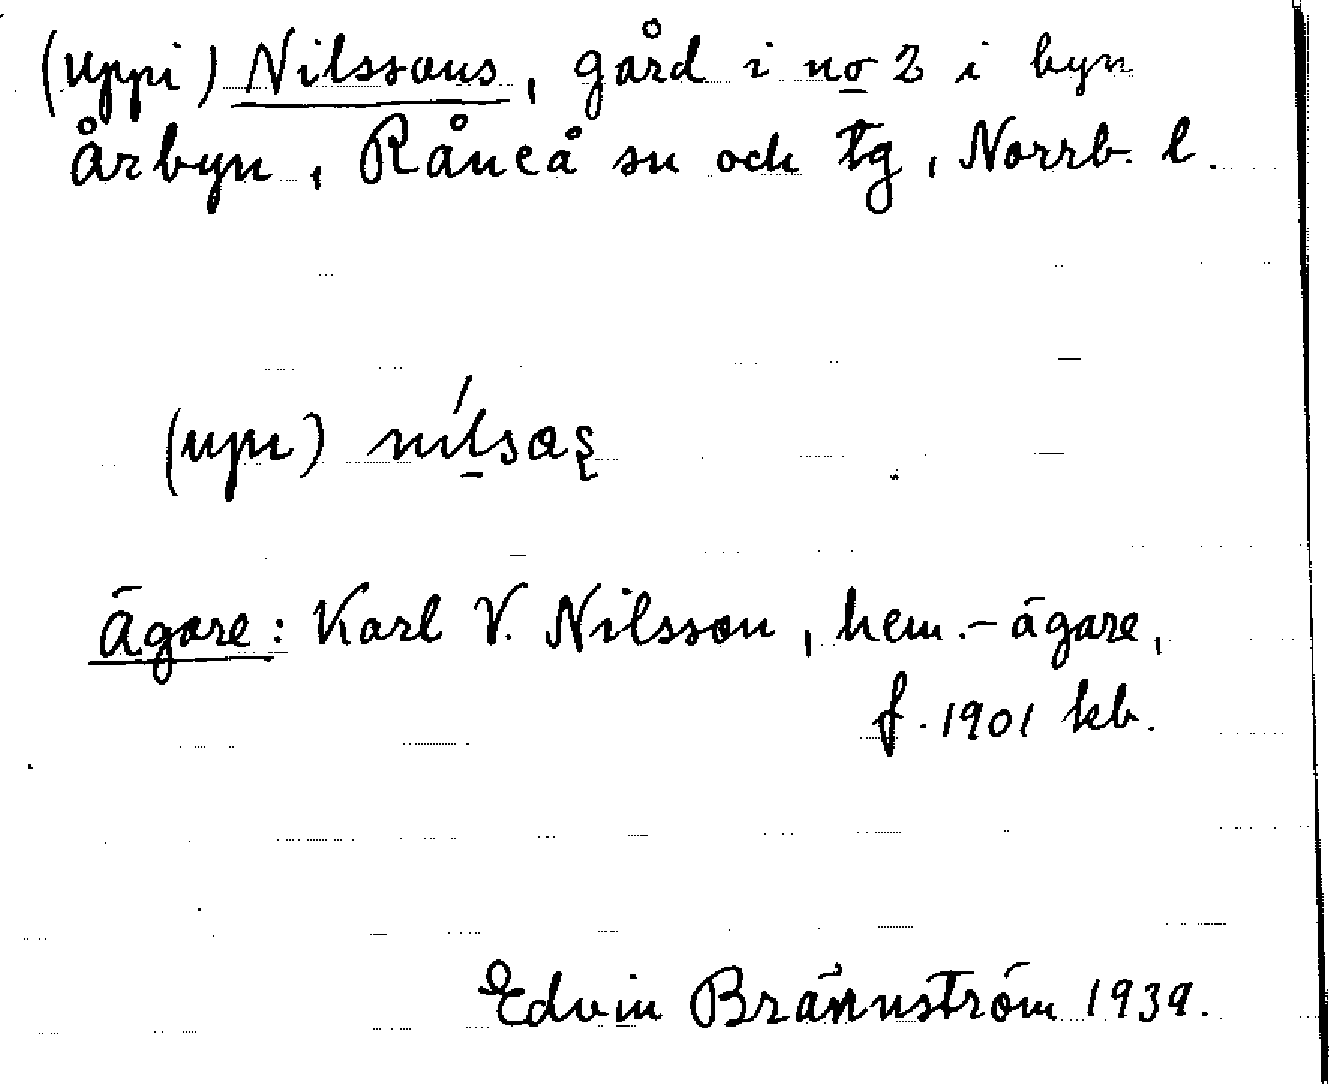 (uppi) Nilssons, gård i no 2 i byn
Årbyn, Råneå sn och tg, Norrb. l.
(upi) nílsas
Ägare: Karl V. Nilsson, hem.-ägare,
f. 1901 kb.
Edvin Brännström 1939.